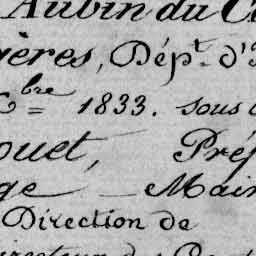 Aubin du C
ères, Dépt. d'
bre 1833. sous
ouet, Préf
ge Mair
Direction de